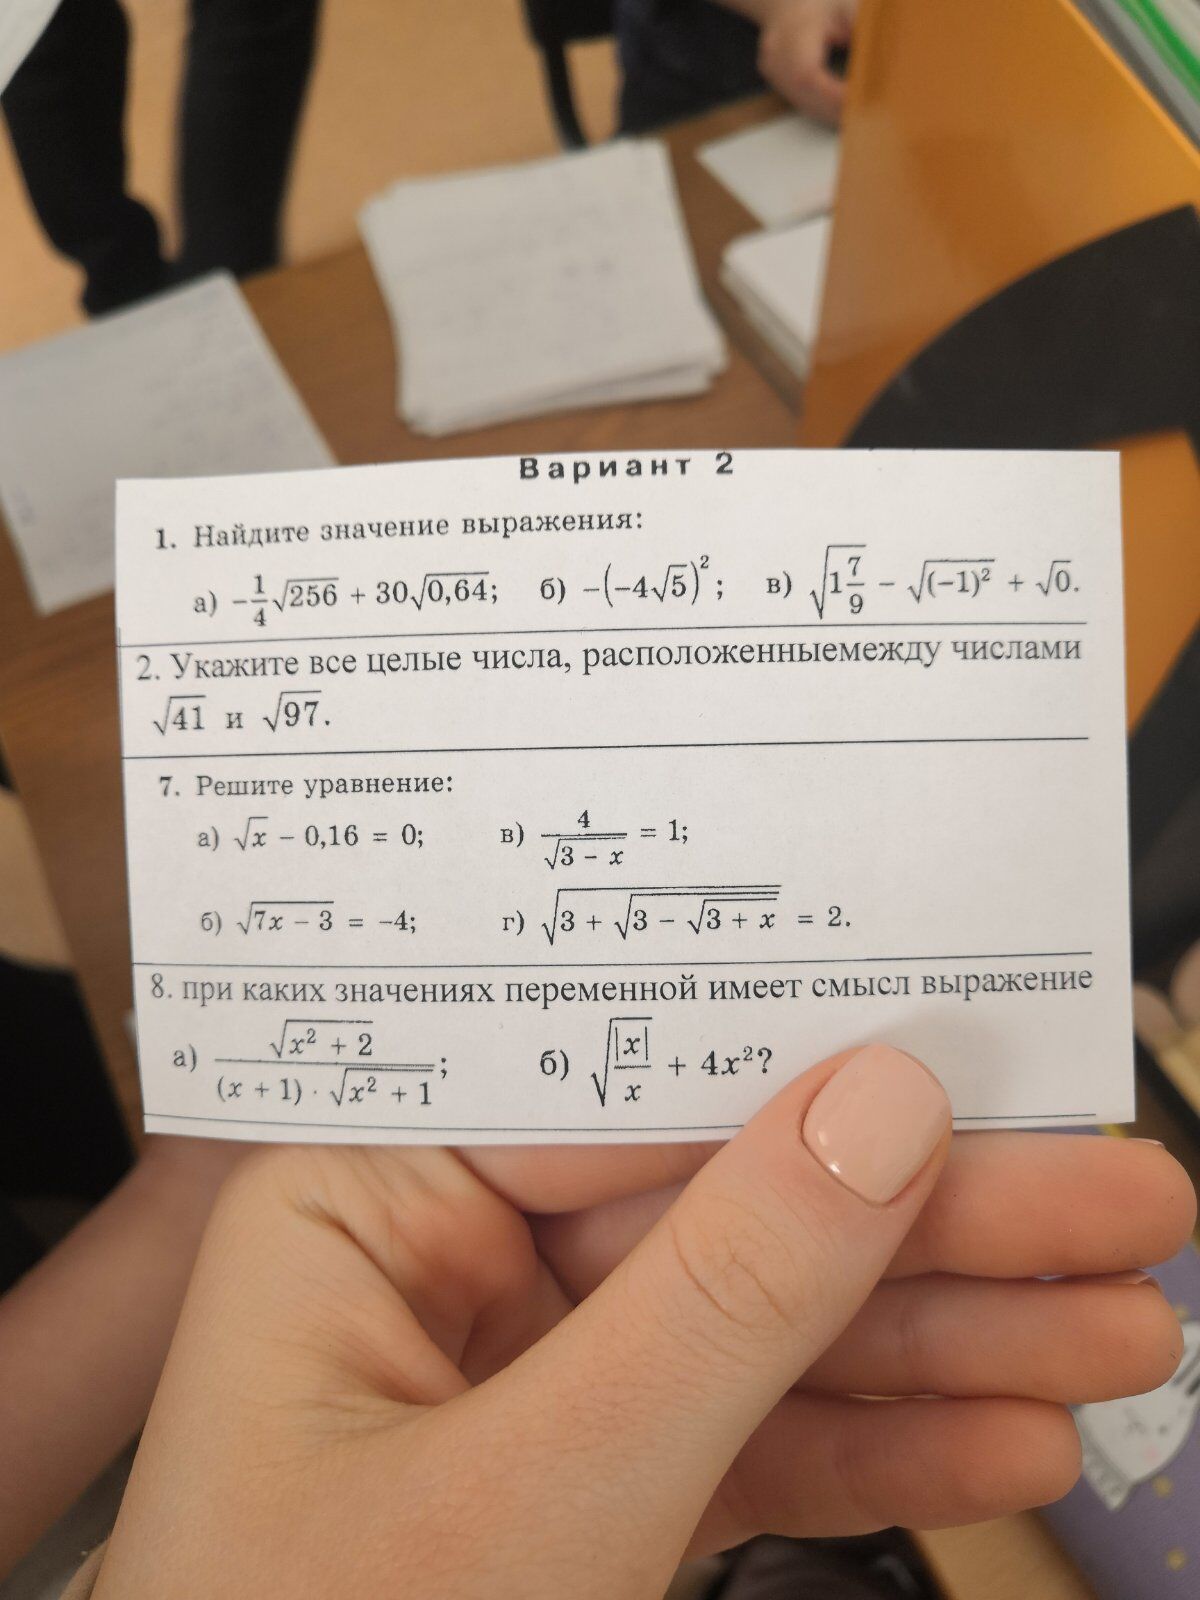 Вариант 2
1. Найдите значение выражения:
а) −1/4√256 + 30√0,64; б) −(−4√5)²; в) √(1 7/9) − √((−1)²) + √0.
2. Укажите все целые числа, расположенныемежду числами
√41 и √97.
7. Решите уравнение:
а) √x − 0,16 = 0; в) 4/√(3 − x) = 1;
б) √(7x − 3) = −4; г) √(3 + √(3 − √(3 + x))) = 2.
8. при каких значениях переменной имеет смысл выражение
а) √(x² + 2)/((x + 1) · √(x² + 1)); б) √(|x|/x) + 4x²?